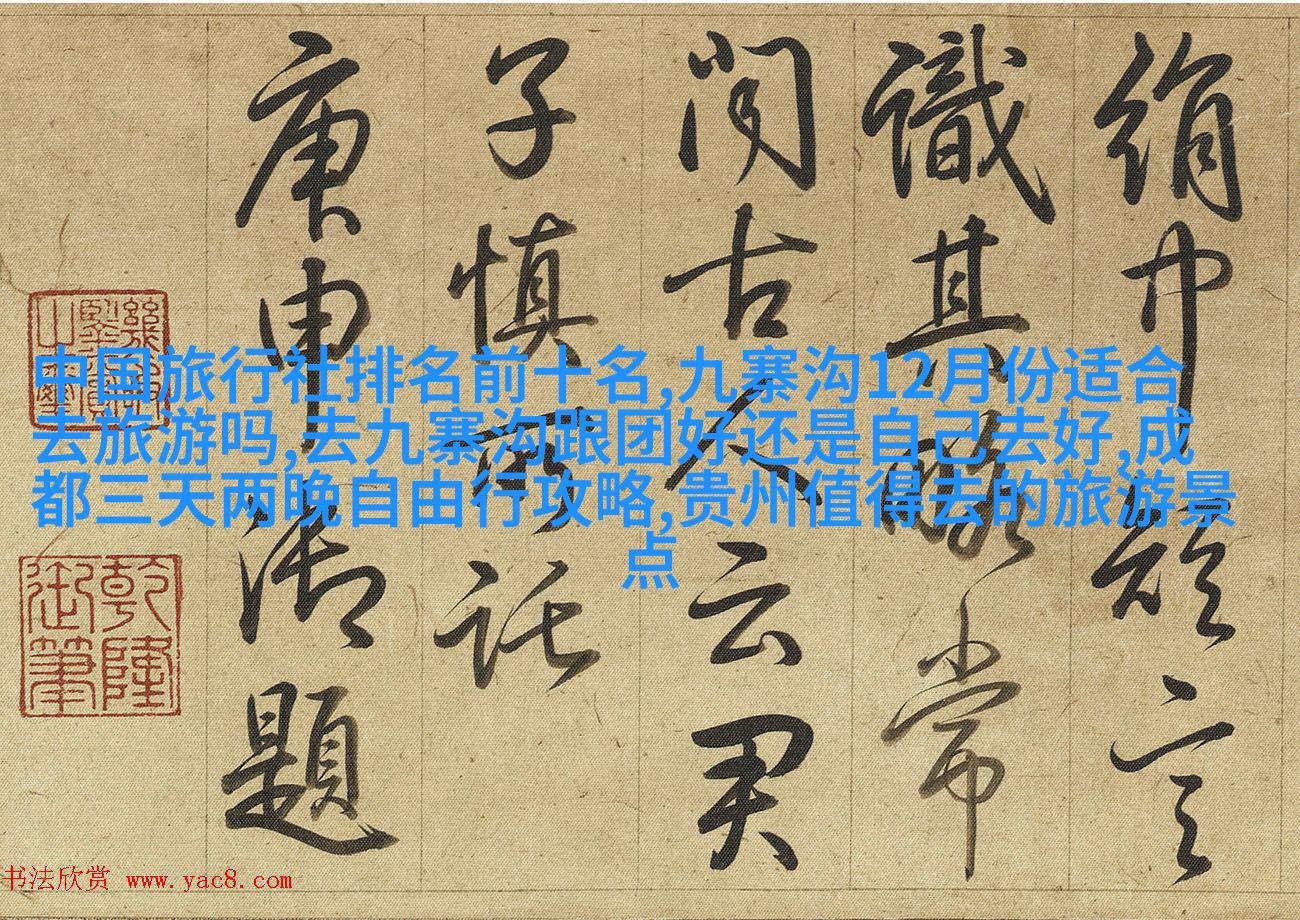 絹巾言
識其常
聞古人云君
子慎所託
庚申御題
乾隆
御筆
中国旅行社排名前十名,九寨沟12月份适合
去旅游吗,去九寨沟跟团好还是自己去好,成
都三天两晚自由行攻略,贵州值得去的旅游景
点
书法欣赏 www.yac8.com